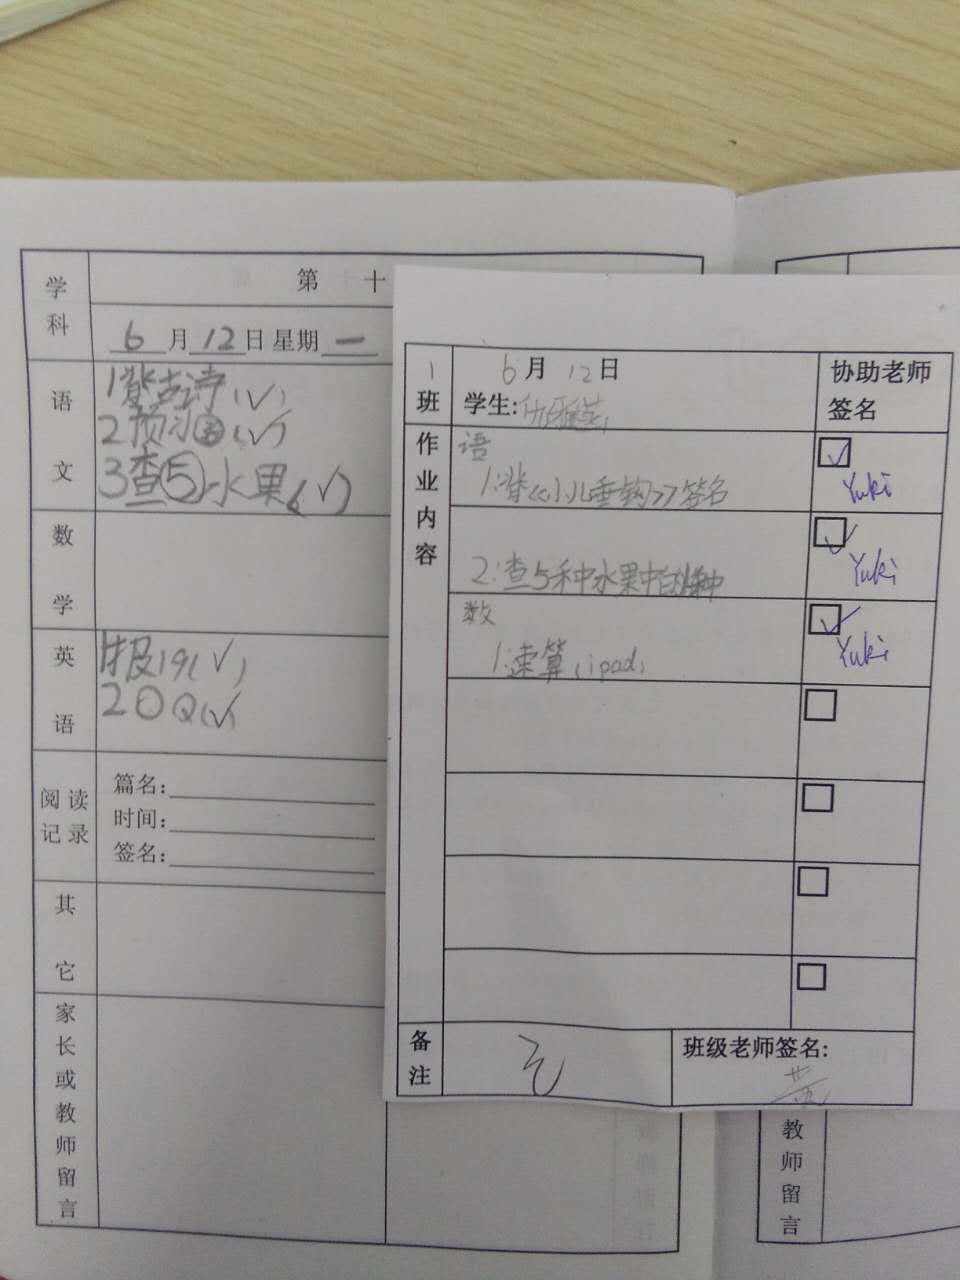 学科
第 十
6月12日 星期一
语文
1背古诗(√)
2预习园(√)
3查⑤水果(√)
数学
英语
报19(√)
20Q(√)
阅读记录
篇名:
时间:
签名:
其它
家长或教师留言
1班
6月12日
学生:
协助老师签名
作业内容
语
1.背《小儿垂钓》签名
Yuki
2.查5种水果中
Yuki
数
1.速算(ipad)
Yuki
备注
无
班级老师签名:
黄
教师留言